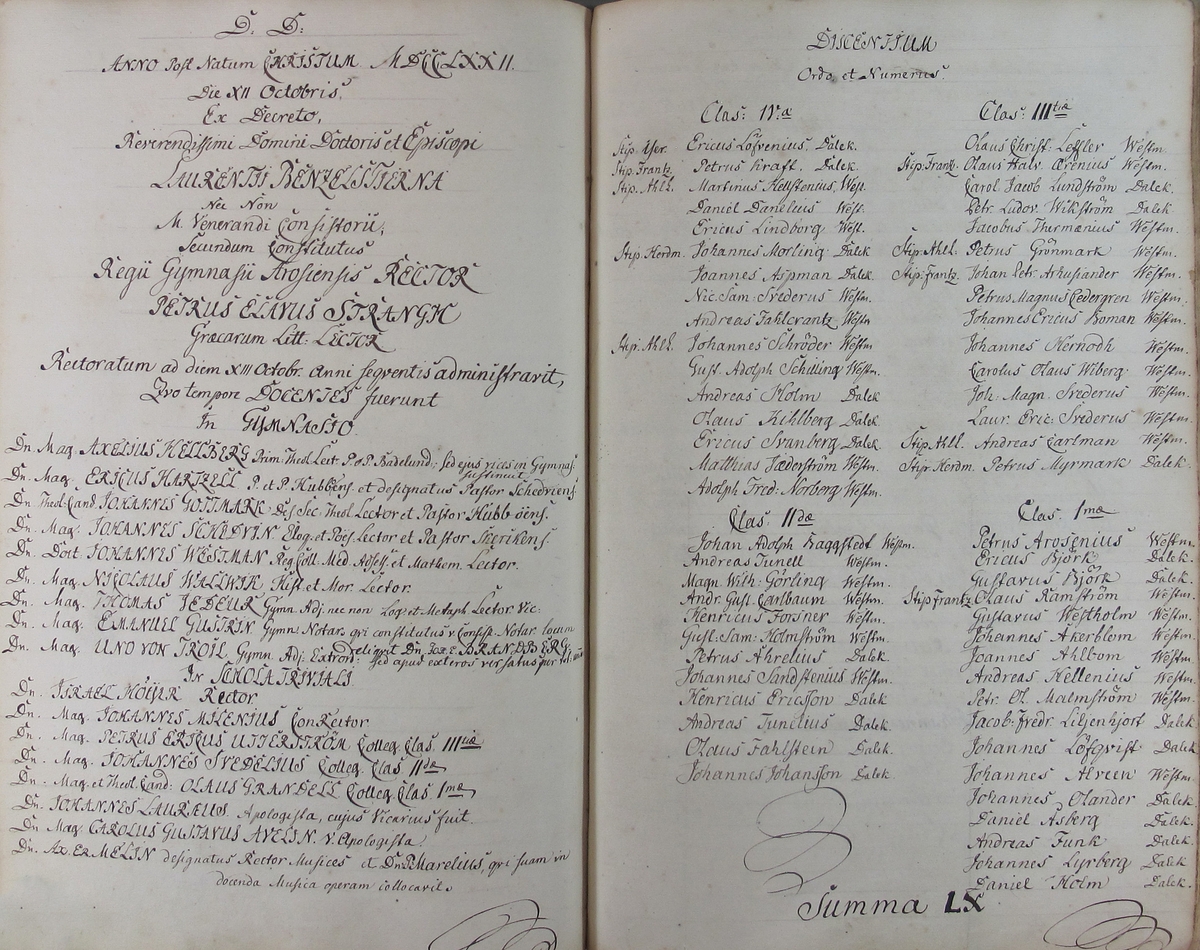 D. D:
ANNO Post Natum CHRISTUM MDCCLXXII.
Die XII Octobris,
Ex Decreto,
Reverendissimi Domini Doctoris et Episcopi
LAURENTII BENZELSTIERNA
Nec Non
M. Venerandi Consistorii,
Secundum Constitutus
Regii Gymnasii Arosiensis RECTOR
PETRUS ELAVUS STRANGH
Græcarum Litt: LECTOR
Rectoratum ad diem XIII Octobr. Anni seqventis administravit,
Qvo tempore DOCENTES fuerunt
In GYMNASIO.
Dn. Mag. AXELIUS HELLBERG Prim. Theol. Lect. P. et P. Badelund; sed ejus vices in Gymnas.
sustinuit
Dn. Mag. ERICUS HARTZELL P. et P. Hubbens. et designatus Pastor Schedviens.
Dn. Theol. Cand. JOHANNES GOTTMARK Des. Sec. Theol Lector et Pastor Hubb öens.
Dn. Mag. JOHANNES SCHEDVIN Eloq. et Poës. Lector et Pastor Sevikens.
Dn. Doct. JOHANNES WESTMAN Reg. Coll. Med. Assess. et Mathem. Lector.
Dn. Mag. NICOLAUS WALLWIK Hist. et Mor. Lector.
Dn. Mag. THOMAS JEDEUR Gymn. Adj. nec non Log. et Metaph Lector Vic:
Dn. Mag. EMANUEL GUSTRIN. Gymn. Notar. qvi constitutus v Consist. Notar. locum
reliqvit Dn. JOH. E. BRANDBERG.
Dn. Mag. UNO VON TROIL, Gymn. Adj. Extrord: sed apud exteros versatus
In SCHOLA TRIVIALI.
Dn. ISRAEL HÖIJER Rector
Dn. Mag. JOHANNES MILENIUS ConRector
Dn. Mag. PETRUS ERICUS UTTERSTRÖM Colleg. Clas. IIItiæ
Dn. Mag. JOHANNES SVEDELIUS Colleg. Clas IIdæ
Dn. Mag. et Theol. Cand: OLAUS GRANDELL Colleg. Clas. Imæ
Dn. JOHANNES LAURÆUS Apologista, cujus Vicarius fuit.
Dn. Mag. CAROLUS GUSTAVUS AVELIN. V. Apologista.
Dn. AX. ERMELIN designatus Rector Musices et Dn. P. Marelius, qvi suam in
docenda Musica operam collocavit.
DISCENTIUM
Ordo et Numerus.
Clas: IV.a
Stip. Ver. Ericus Löfvenius Dalek.
Stip. Frantz. Petrus Kraft. Dalek.
Stip. Ahll. Martinus Hellstenius, West.
Daniel Danelius West.
Ericus Lindborg West.
Stip. Herdm. Johannes Morling Dalek
Joannes Aspman Dalek.
Nic. Sam. Svederus Westm.
Andreas Fahlcrantz Westm
Stip. Ahll. Johannes Schröder Westm.
Gust. Adolph Schilling Westm.
Andreas Holm Dalek
Olaus Kihlberg Dalek
Ericus Svanberg Dalek
Matthias Fæderström Westm.
Adolph Fred: Norberg Westm.
Clas. IIdæ
Johan Adolph Haggstedt Westm.
Andreas Tunell Westm.
Magn. Wilh: Görling Westm.
Andr. Gust. Carlbaum Westm.
Henricus Forsner Westm.
Gust. Sam: Holmström Westm.
Petrus Ahrelius Dalek.
Johannes Sandstenius Westm.
Henricus Ericsson Dalek
Andreas Tunelius Dalek.
Olaus Fahlstein Dalek.
Johannes Johansson Dalek
Clas: IIItiæ
Olaus Christ. Leffler Westm.
Stip. Frantz. Olaus Halv. Ærenius Westm.
Carol. Jacob Lundström Dalek.
Petr. Ludov. Wikström Dalek
Jacobus Thermænius Westm.
Stip. Ahll: Petrus Grönmark Westm.
Stip: Frantz. Johan Petr. Arhusiander Westm.
Petrus Magnus Cedergren Westm.
Johannes Ericus Boman Westm.
Johannes Hernodh Westm.
Carolus Olaus Wiberg Westm.
Joh: Magn. Svederus Westm.
Laur. Eric. Svederus Westm.
Stip. Ahll. Andreas Carlman Westm.
Stip. Herdm. Petrus Myrmark Dalek.
Clas. Imæ
Petrus Arosenius Westm.
Ericus Björk Dalek.
Gustavus Björk Dalek.
Stip Frantz. Olaus Ramström Westm.
Gustavus Westholm Westm.
Johannes Åkerblom Westm.
Joannes Ahlbom Westm.
Andreas Hellenius Westm.
Petr. Ol. Malmström Westm.
Jacob: Fredr. Liljenhjort Dalek
Johannes Löfqvist Dalek
Johannes Alreen Westm.
Johannes Olander Dalek.
Daniel Åsberg Dalek.
Andreas Funk Dalek.
Johannes Lyrberg Dalek
Daniel Holm Dalek.
Summa LX